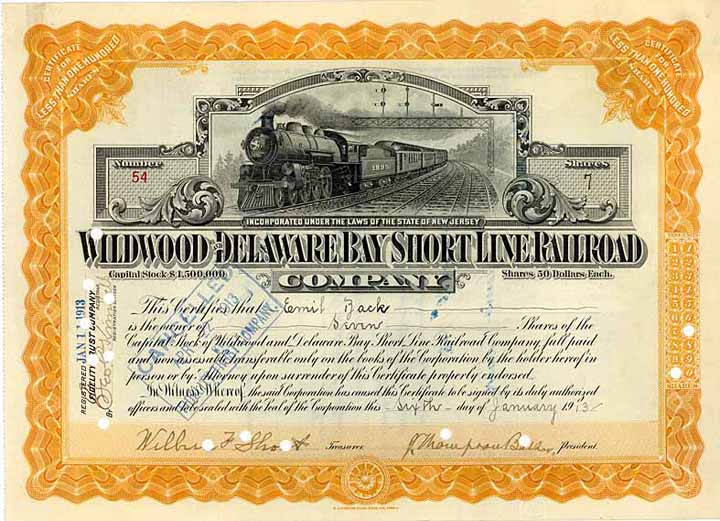 CERTIFICATE
FOR
LESS THAN ONE HUNDRED
SHARES
CERTIFICATE
FOR
LESS THAN ONE HUNDRED
SHARES
Number
54
Shares
7
INCORPORATED UNDER THE LAWS OF THE STATE OF NEW JERSEY
WILDWOOD AND DELAWARE BAY SHORT LINE RAILROAD
Capital Stock $1,500,000.
COMPANY
Shares, 50 Dollars Each.
This Certifies that Emil
is the owner of Seven Shares of the
Capital Stock of Wildwood and Delaware Bay Short Line Railroad Company, full paid
and non-assessable transferable only on the books of the Corporation by the holder hereof in
person or by Attorney upon surrender of this Certificate properly endorsed.
In Witness Whereof, the said Corporation has caused this Certificate to be signed by its duly authorized
officers and to be sealed with the Seal of the Corporation this sixth day of January 1913
Wilbur F. Treasurer. J. Thompson President.
CANCELLED
APR
COMPANY
REGISTERED JAN 1913
FIDELITY TRUST COMPANY
BY
SHARES